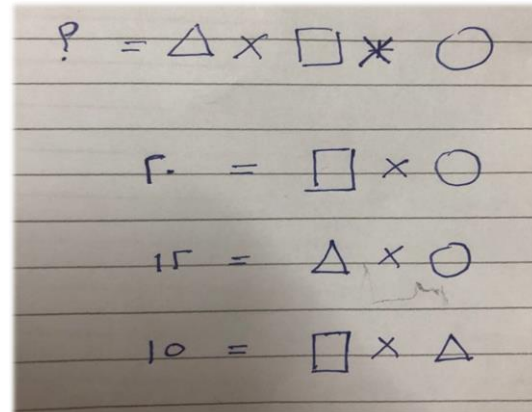 ؟ = △ × □ × ○
٢٠ = □ × ○
١٢ = △ × ○
١٥ = □ × △